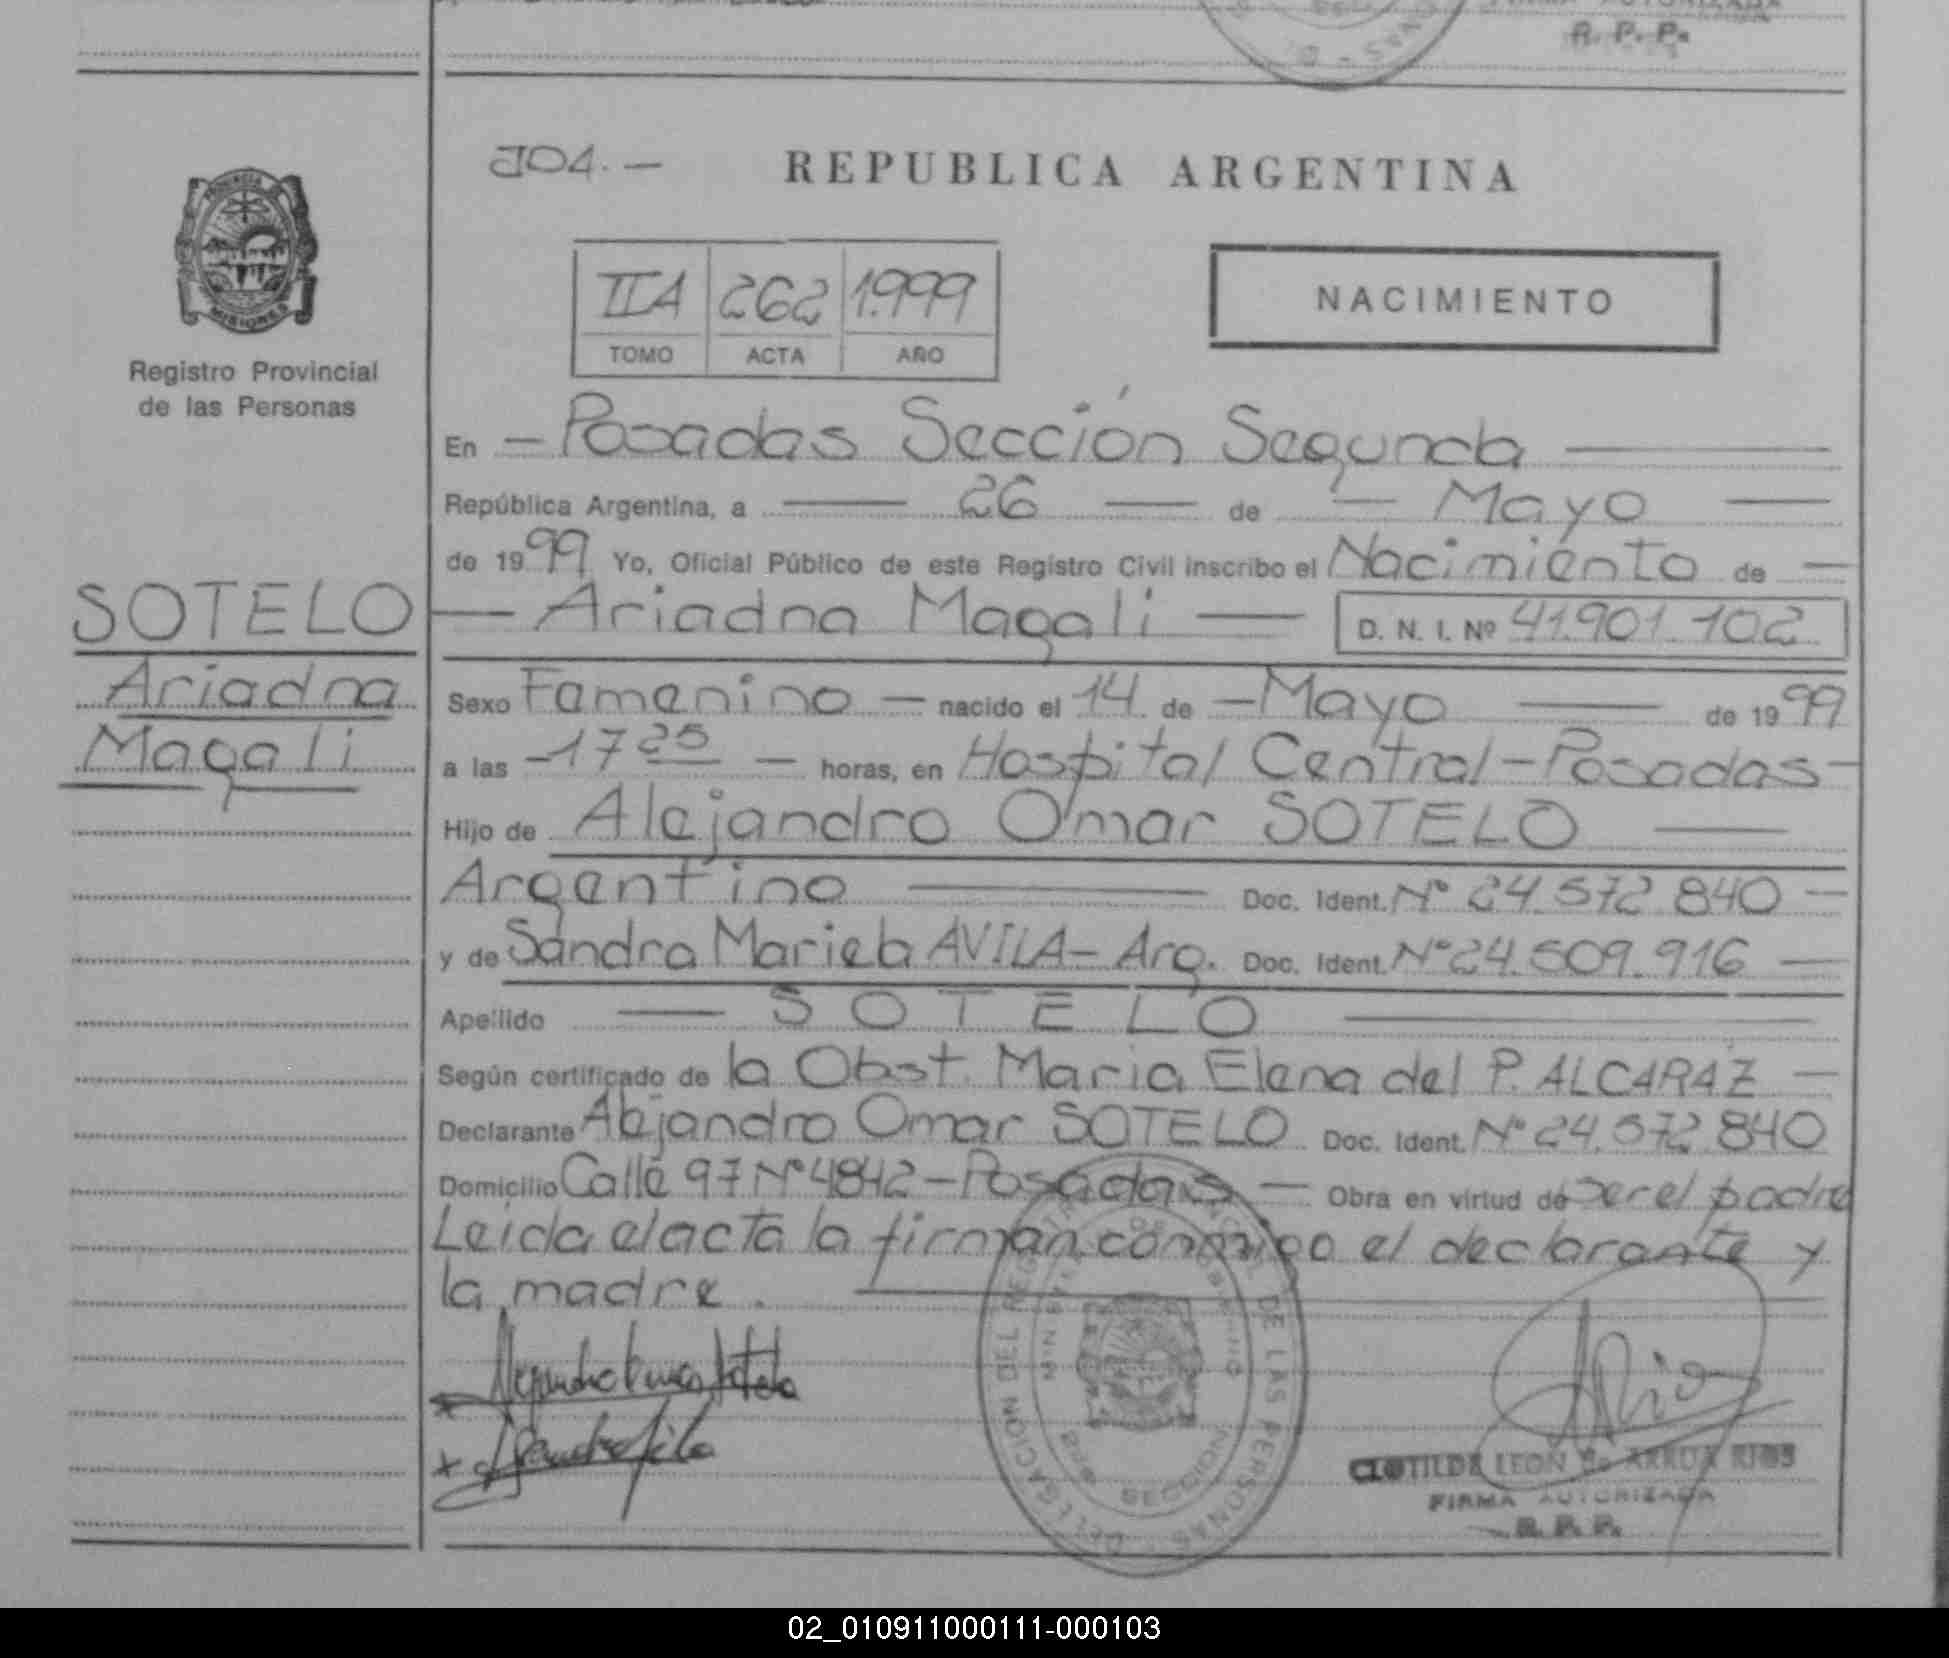 R. P. P.
104.-
REPUBLICA ARGENTINA
PROVINCIA DE
MISIONES
Registro Provincial
de las Personas
IIA 262 1.999
TOMO ACTA AÑO
NACIMIENTO
En - Posadas Sección Segunda
República Argentina, a — 26 — de — Mayo —
de 1999 Yo, Oficial Público de este Registro Civil inscribo el Nacimiento de —
— Ariadna Magali — D. N. I. Nº 41.901.102
SOTELO
Ariadna
Magali
Sexo Femenino — nacido el 14 de — Mayo — de 1999
a las -17 25 — horas, en Hospital Central - Posadas -
Hijo de Alejandro Omar SOTELO —
Argentino — Doc. Ident. Nº 24.572.840 —
y de Sandra Mariela AVILA - Arg. Doc. Ident. Nº 24.509.916 —
Apellido — SOTELO —
Según certificado de la Obst. Maria Elena del P. ALCARAZ —
Declarante Alejandro Omar SOTELO Doc. Ident. Nº 24.572.840
Domicilio Calle 97 Nº 4842 - Posadas — Obra en virtud de ser el padre
Leida el acta la firman conmigo el declarante y
la madre.
DELEGACION DEL REGISTRO PROVINCIAL DE LAS PERSONAS
MINISTERIO DE GOBIERNO
SECCION
CLOTILDE LEON de ARRUA RIOS
FIRMA AUTORIZADA
R. P. P.
02_010911000111-000103